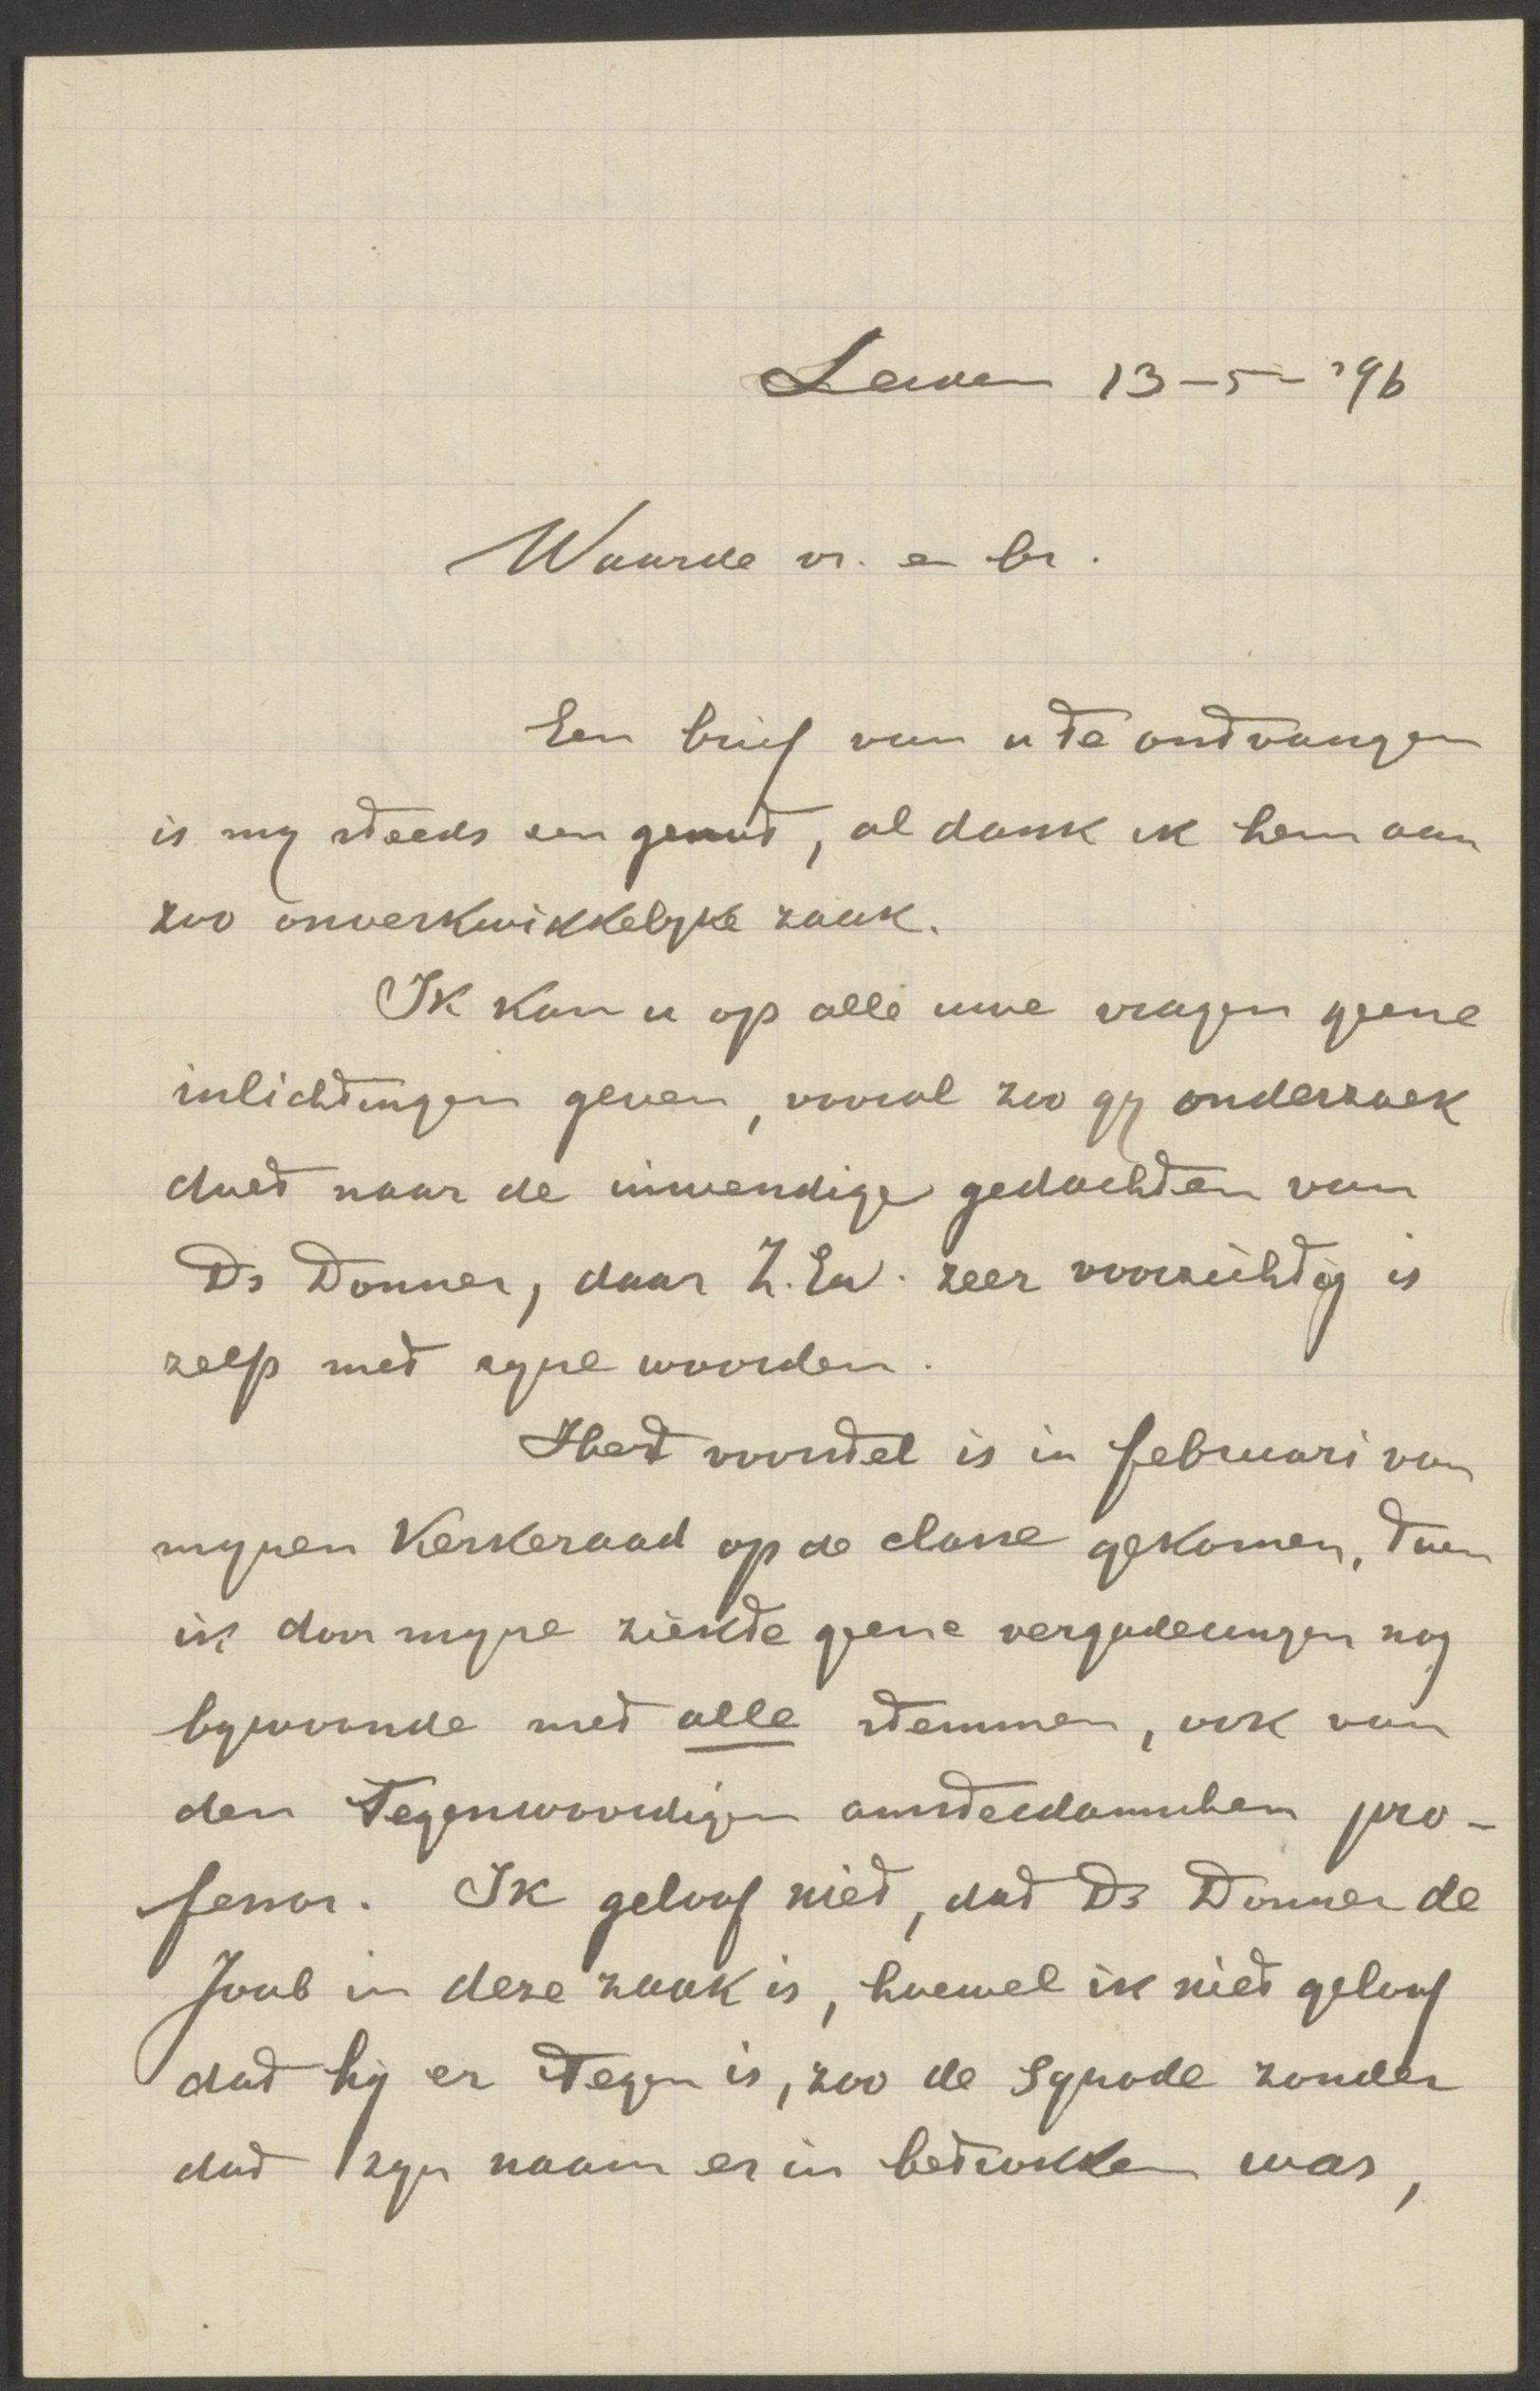 Leiden 13-5-'96
Waarde vr. en br.
Een brief van u te ontvangen
is my steeds een genot, al dank ik hem aan
zoo onverkwikkelyke zaak.
Ik kan u op alle uwe vragen geene
inlichtingen geven, vooral zoo gy onderzoek
doet naar de inwendige gedachten van
Ds Donner, daar Z.Ew. zeer voorzichtig is
zelfs met zyne woorden.
Het voorstel is in februari van
mynen Kerkeraad op de classe gekomen, toen
ik door myne ziekte geene vergaderingen nog
bywoonde met alle stemmen, ook van
den tegenwoordigen amsterdamschen pro-
fessor. Ik geloof niet, dat Ds Donner de
Joab in deze zaak is, hoewel ik niet geloof
dat hij er tegen is, zoo de Synode zonder
dat zyn naam er in betrokken was,